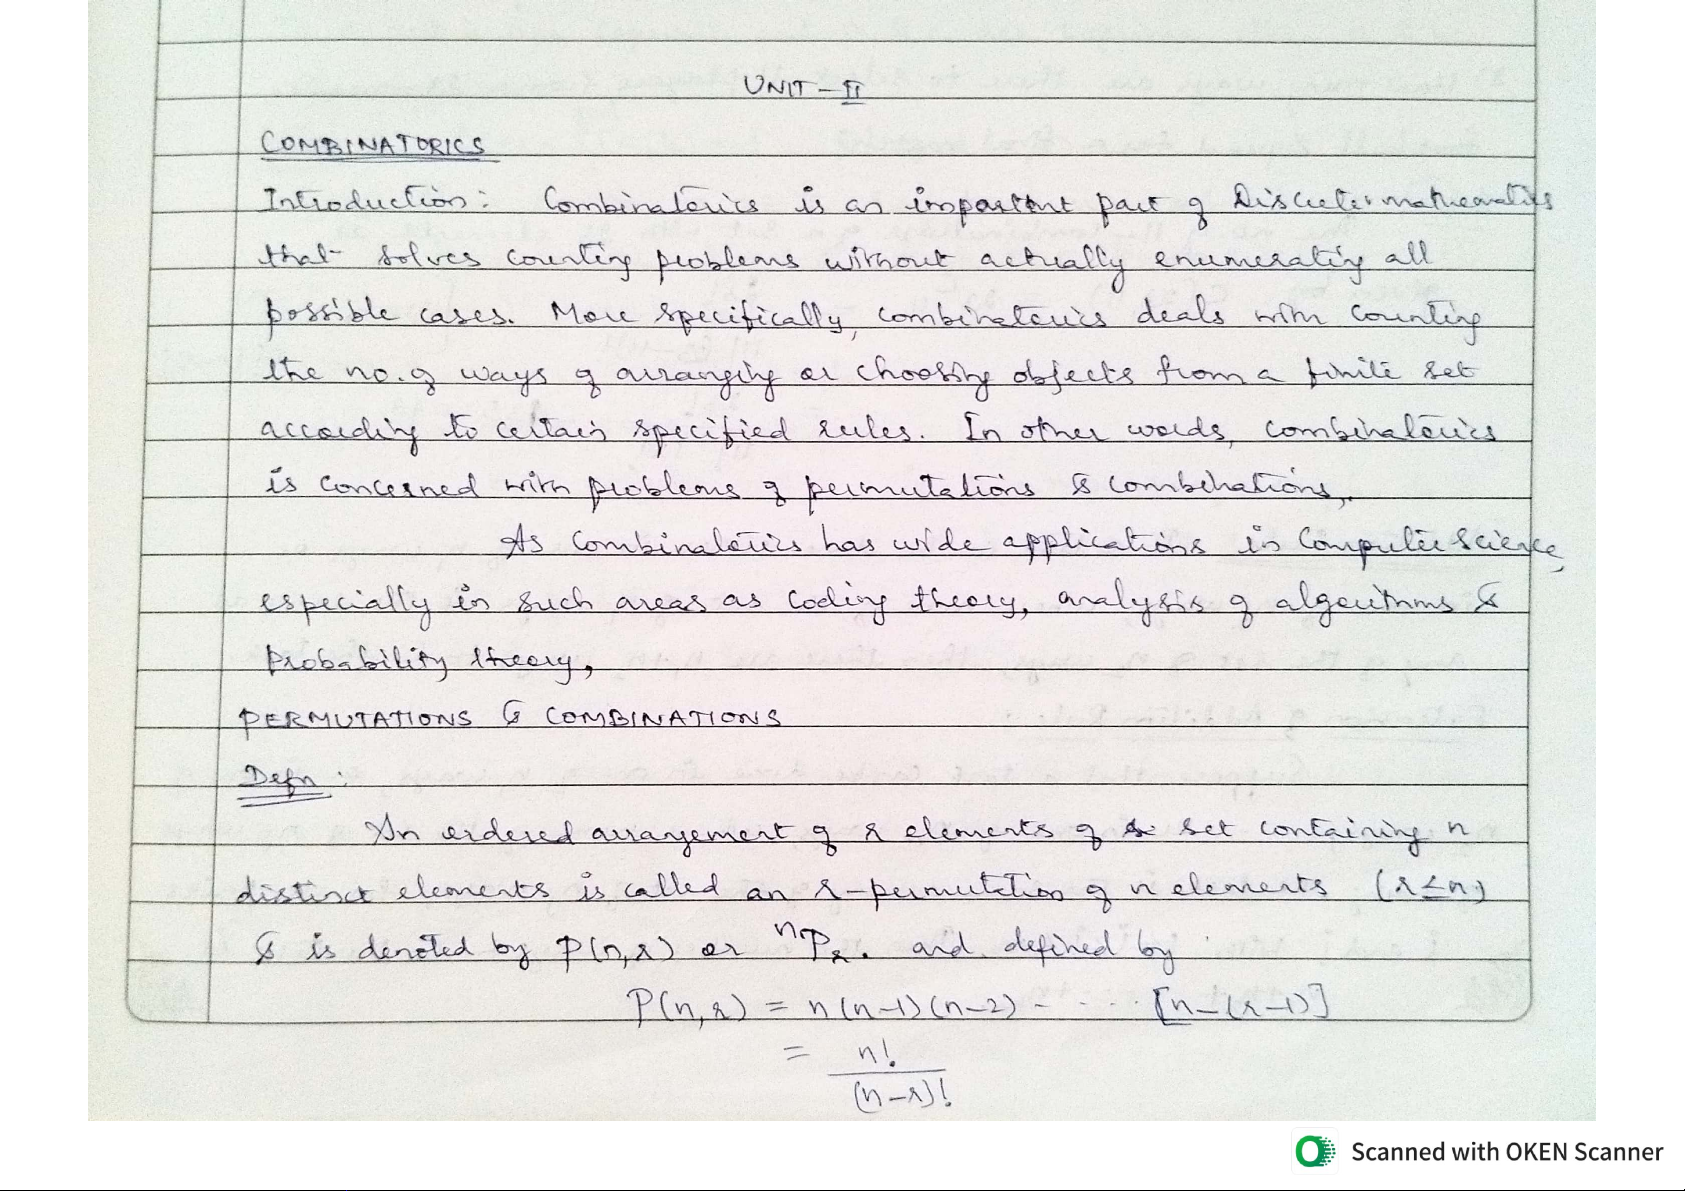 UNIT - II
COMBINATORICS
Introduction: Combinatorics is an important part of Discrete mathematics
that solves counting problems without actually enumerating all
possible cases. More specifically, combinatorics deals with counting
the no. of ways of arranging or choosing objects from a finite set
according to certain specified rules. In other words, combinatorics
is concerned with problems of permutations & combinations.
As Combinatorics has wide applications in Computer Science,
especially in such areas as Coding theory, analysis of algorithms &
Probability theory,
PERMUTATIONS & COMBINATIONS
Defn :
An ordered arrangement of r elements of set containing n
distinct elements is called an r-permutation of n elements (r≤n)
& is denoted by P(n,r) or ⁿPᵣ. and defined by
P(n,r) = n(n-1)(n-2) - ... [n-(r-1)]
= n!
(n-r)!
Scanned with OKEN Scanner